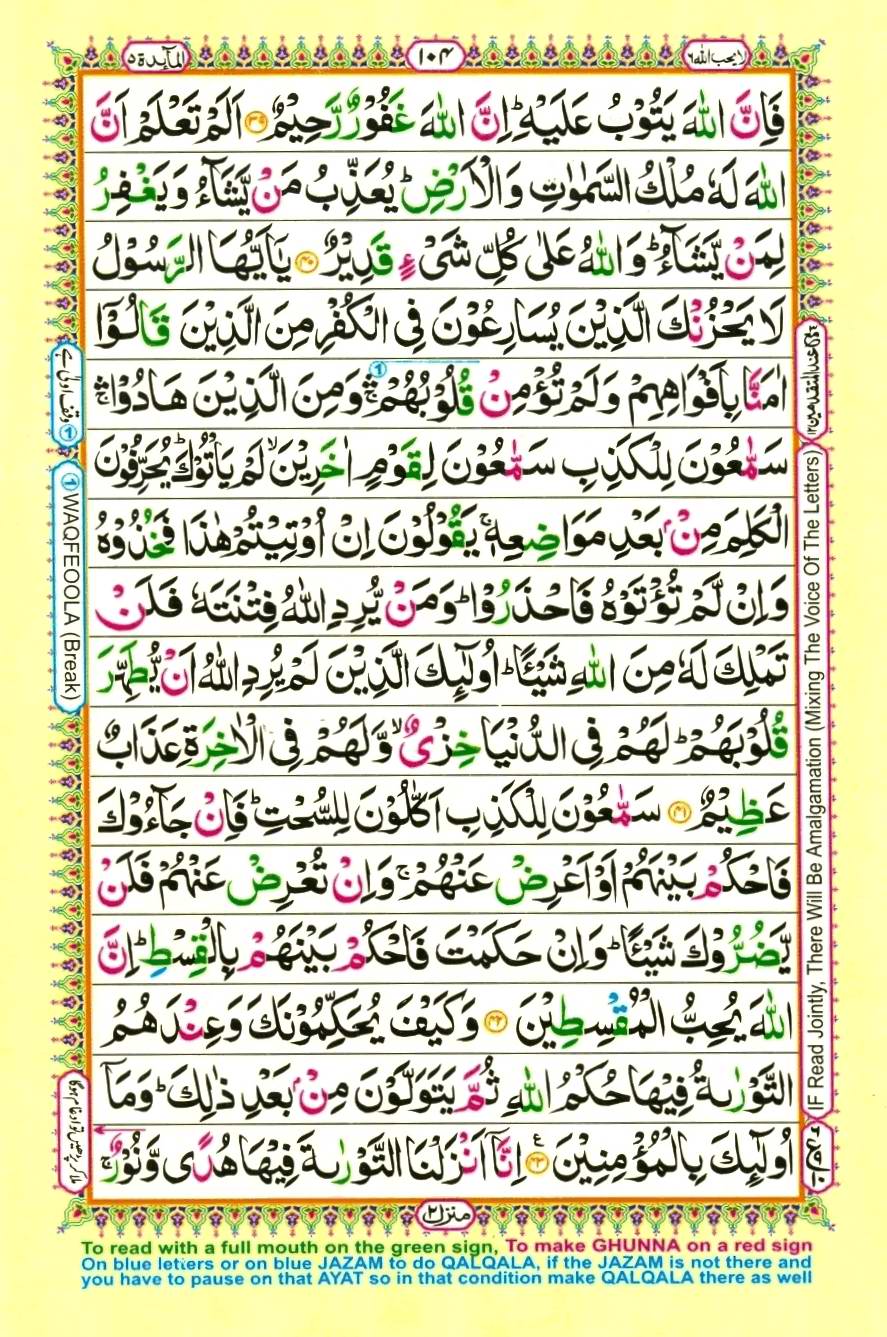 المآىِٕدة ٥
١٠٤
لا یحب اللّٰه ٦
فَاِنَّ اللّٰهَ یَتُوْبُ عَلَیْهِ ؕ اِنَّ اللّٰهَ غَفُوْرٌ رَّحِیْمٌ ۝۳۹ اَلَمْ تَعْلَمْ اَنَّ
اللّٰهَ لَهٗ مُلْكُ السَّمٰوٰتِ وَالْاَرْضِ ؕ یُعَذِّبُ مَنْ یَّشَآءُ وَیَغْفِرُ
لِمَنْ یَّشَآءُ ؕ وَاللّٰهُ عَلٰی كُلِّ شَیْءٍ قَدِیْرٌ ۝۴۰ یٰۤاَیُّهَا الرَّسُوْلُ
لَا یَحْزُنْكَ الَّذِیْنَ یُسَارِعُوْنَ فِی الْكُفْرِ مِنَ الَّذِیْنَ قَالُوْۤا
اٰمَنَّا بِاَفْوَاهِهِمْ وَلَمْ تُؤْمِنْ قُلُوْبُهُمْ ۛۚ وَمِنَ الَّذِیْنَ هَادُوْا ۛۚ
سَمّٰعُوْنَ لِلْكَذِبِ سَمّٰعُوْنَ لِقَوْمٍ اٰخَرِیْنَ ۙ لَمْ یَاْتُوْكَ ؕ یُحَرِّفُوْنَ
الْكَلِمَ مِنْۢ بَعْدِ مَوَاضِعِهٖ ۚ یَقُوْلُوْنَ اِنْ اُوْتِیْتُمْ هٰذَا فَخُذُوْهُ
وَاِنْ لَّمْ تُؤْتَوْهُ فَاحْذَرُوْا ؕ وَمَنْ یُّرِدِ اللّٰهُ فِتْنَتَهٗ فَلَنْ
تَمْلِكَ لَهٗ مِنَ اللّٰهِ شَیْـًٔا ؕ اُولٰٓىِٕكَ الَّذِیْنَ لَمْ یُرِدِ اللّٰهُ اَنْ یُّطَهِّرَ
قُلُوْبَهُمْ ؕ لَهُمْ فِی الدُّنْیَا خِزْیٌ ۙ وَّلَهُمْ فِی الْاٰخِرَةِ عَذَابٌ
عَظِیْمٌ ۝۴۱ سَمّٰعُوْنَ لِلْكَذِبِ اَكّٰلُوْنَ لِلسُّحْتِ ؕ فَاِنْ جَآءُوْكَ
فَاحْكُمْ بَیْنَهُمْ اَوْ اَعْرِضْ عَنْهُمْ ۚ وَاِنْ تُعْرِضْ عَنْهُمْ فَلَنْ
یَّضُرُّوْكَ شَیْـًٔا ؕ وَاِنْ حَكَمْتَ فَاحْكُمْ بَیْنَهُمْ بِالْقِسْطِ ؕ اِنَّ
اللّٰهَ یُحِبُّ الْمُقْسِطِیْنَ ۝۴۲ وَكَیْفَ یُحَكِّمُوْنَكَ وَعِنْدَهُمُ
التَّوْرٰىةُ فِیْهَا حُكْمُ اللّٰهِ ثُمَّ یَتَوَلَّوْنَ مِنْۢ بَعْدِ ذٰلِكَ ؕ وَمَاۤ
اُولٰٓىِٕكَ بِالْمُؤْمِنِیْنَ ۝۴۳ اِنَّاۤ اَنْزَلْنَا التَّوْرٰىةَ فِیْهَا هُدًی وَّنُوْرٌ ۚ
منزل ۲
① وقف اولیٰ ہے
① WAQFEOOLA (Break)
ملا کر پڑھیں تو ادغام ہوگا
IF Read Jointly, There Will Be Amalgamation (Mixing The Voice Of The Letters)
To read with a full mouth on the green sign, To make GHUNNA on a red sign
On blue letters or on blue JAZAM to do QALQALA, if the JAZAM is not there and
you have to pause on that AYAT so in that condition make QALQALA there as well